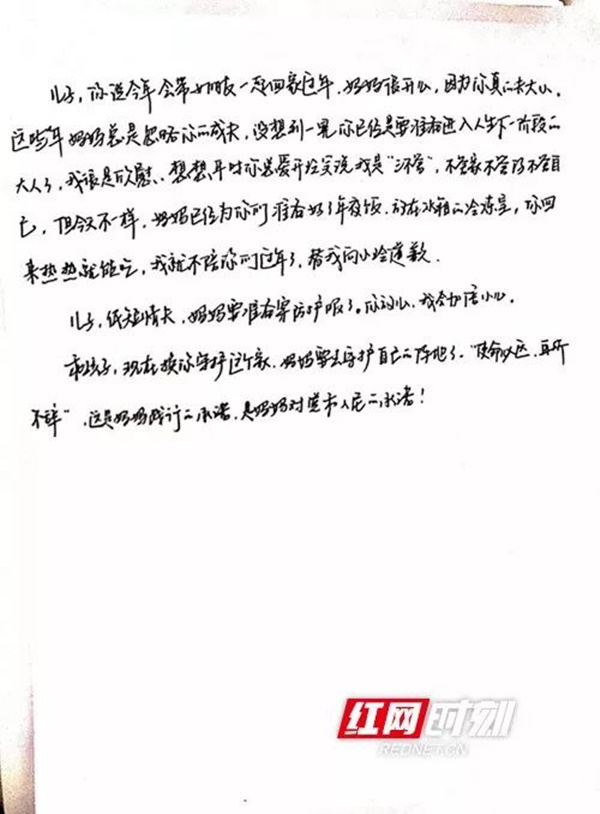 儿子，你说今年会带女朋友一起回家过年，妈妈很开心，因为你真的长大了，
这些年妈妈总是忽略你的成长，没想到一晃你已经是要准备进入人生下一阶段的
大人了，我很是欣慰。想想平时你总爱开玩笑说我是“三不管”，不管家不管你不管自
己，但今天不一样，妈妈已经为你们准备好了年夜饭，放在冰箱的冷冻室，你回
来热热就能吃，我就不陪你们过年了，替我向小玲道歉．
儿子，纸短情长，妈妈要准备穿防护服了。你放心，我会加倍小心。
乖孩子，现在换你守护这个家，妈妈要去守护自己的阵地了，“使命必达，在所
不辞”，这是妈妈践行的承诺，是妈妈对党和人民的承诺！
红网时刻
REDNET.CN